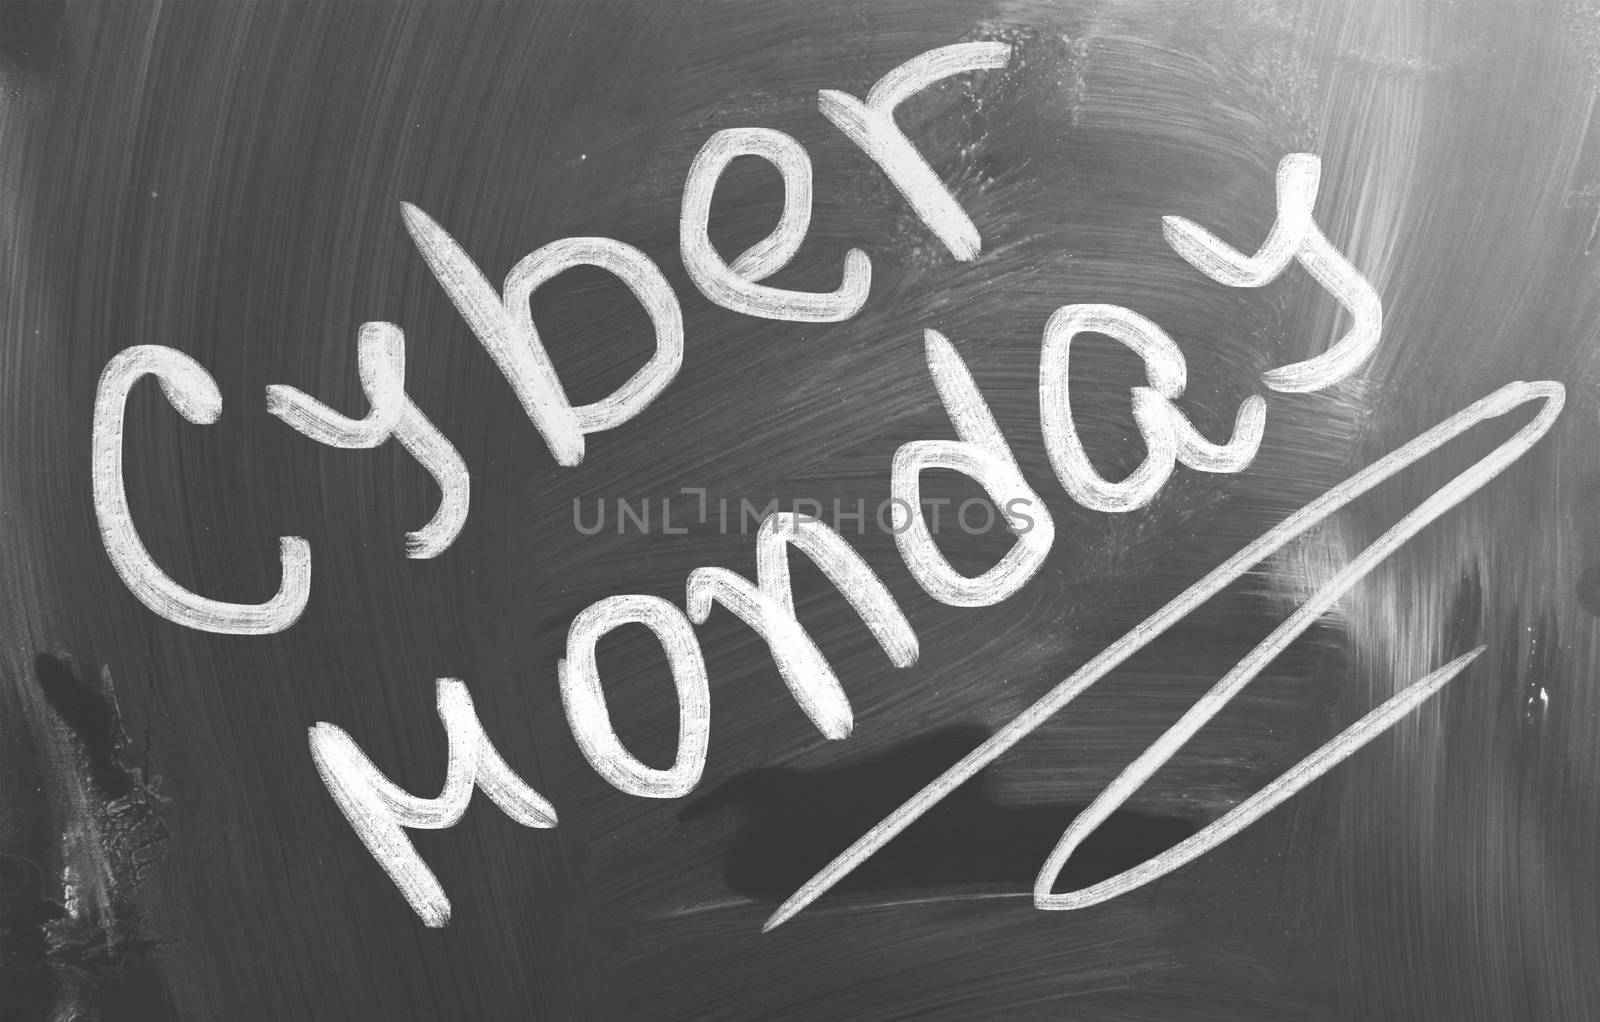 Cyber
Monday
UNLIMPHOTOS